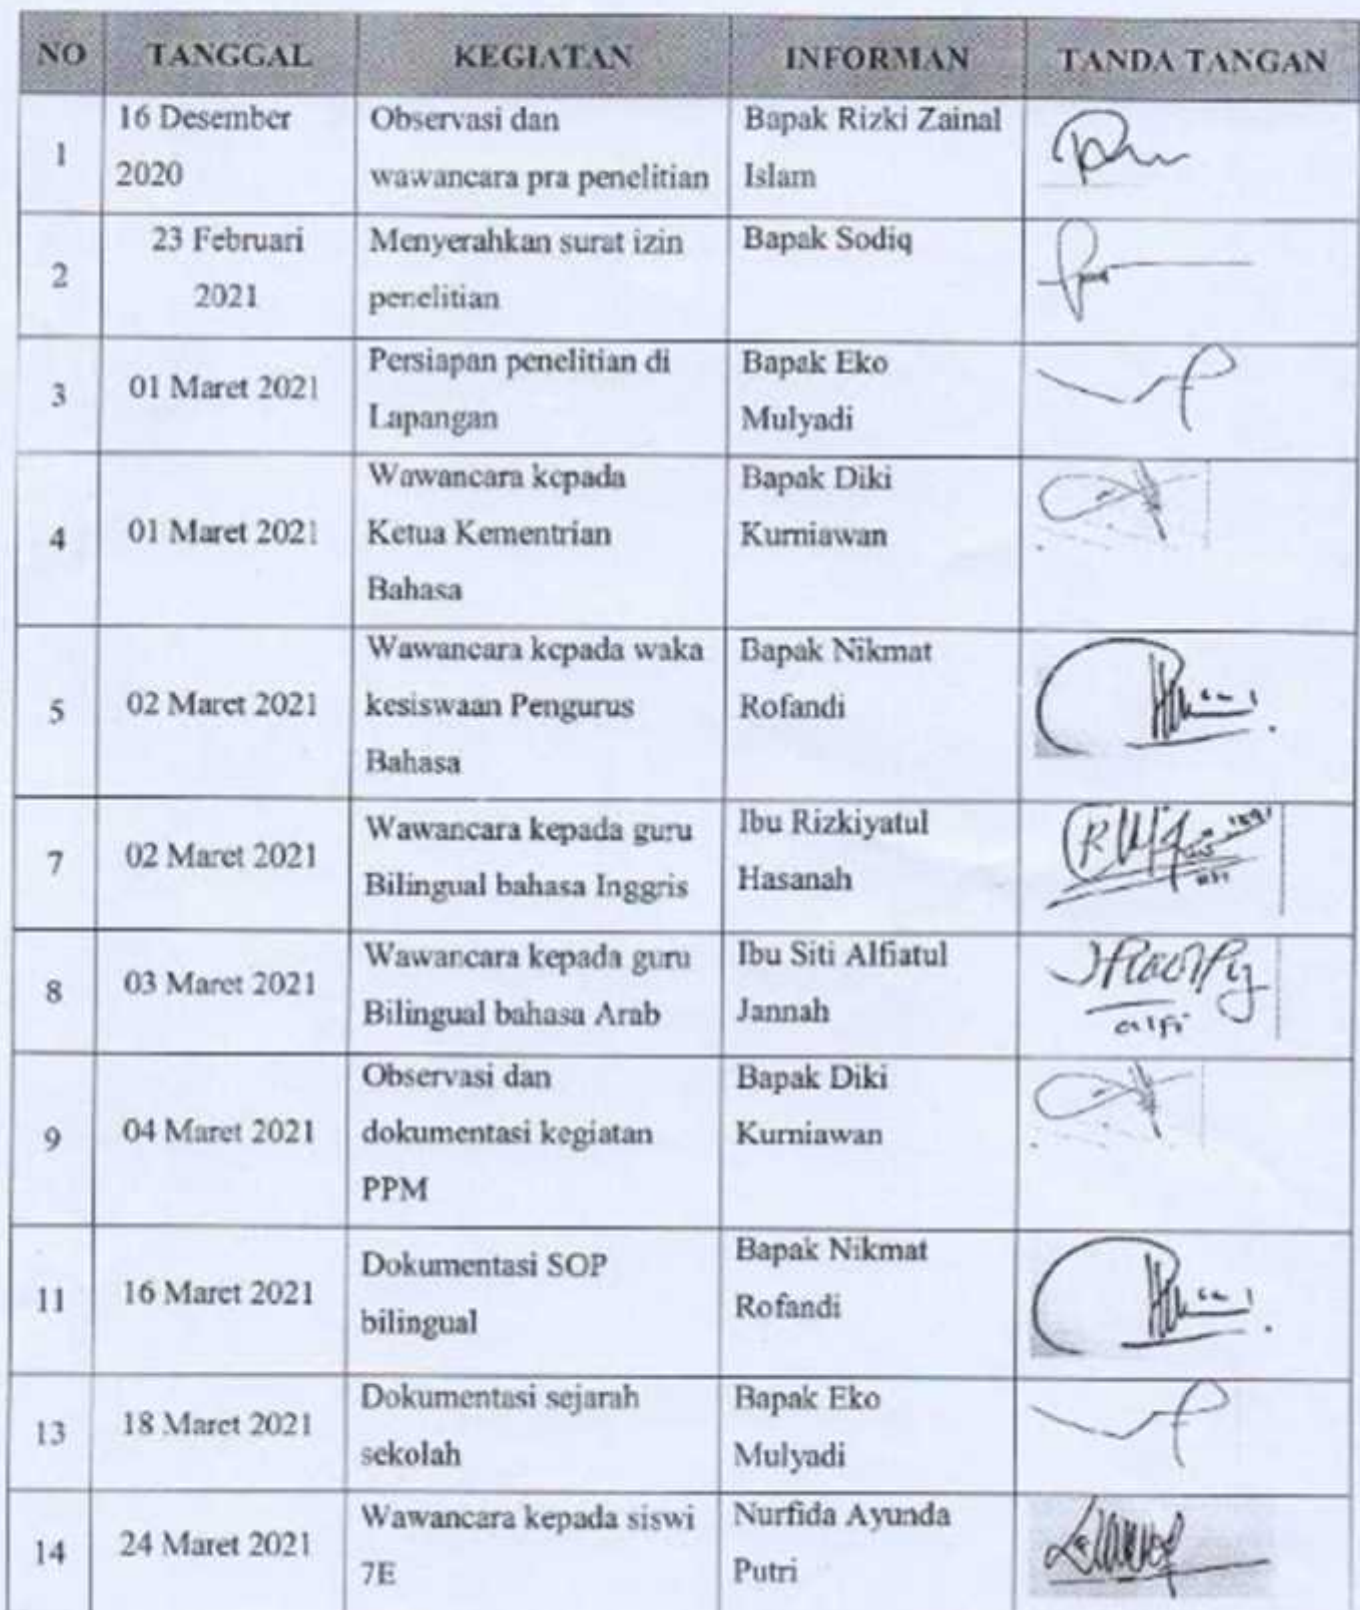 NO TANGGAL KEGIATAN INFORMAN TANDA TANGAN
1 16 Desember 2020 Observasi dan wawancara pra penelitian Bapak Rizki Zainal Islam
2 23 Februari 2021 Menyerahkan surat izin penelitian Bapak Sodiq
3 01 Maret 2021 Persiapan penelitian di Lapangan Bapak Eko Mulyadi
4 01 Maret 2021 Wawancara kepada Ketua Kementrian Bahasa Bapak Diki Kurniawan
5 02 Maret 2021 Wawancara kepada waka kesiswaan Pengurus Bahasa Bapak Nikmat Rofandi
7 02 Maret 2021 Wawancara kepada guru Bilingual bahasa Inggris Ibu Rizkiyatul Hasanah
8 03 Maret 2021 Wawancara kepada guru Bilingual bahasa Arab Ibu Siti Alfiatul Jannah alfi
9 04 Maret 2021 Observasi dan dokumentasi kegiatan PPM Bapak Diki Kurniawan
11 16 Maret 2021 Dokumentasi SOP bilingual Bapak Nikmat Rofandi
13 18 Maret 2021 Dokumentasi sejarah sekolah Bapak Eko Mulyadi
14 24 Maret 2021 Wawancara kepada siswi 7E Nurfida Ayunda Putri